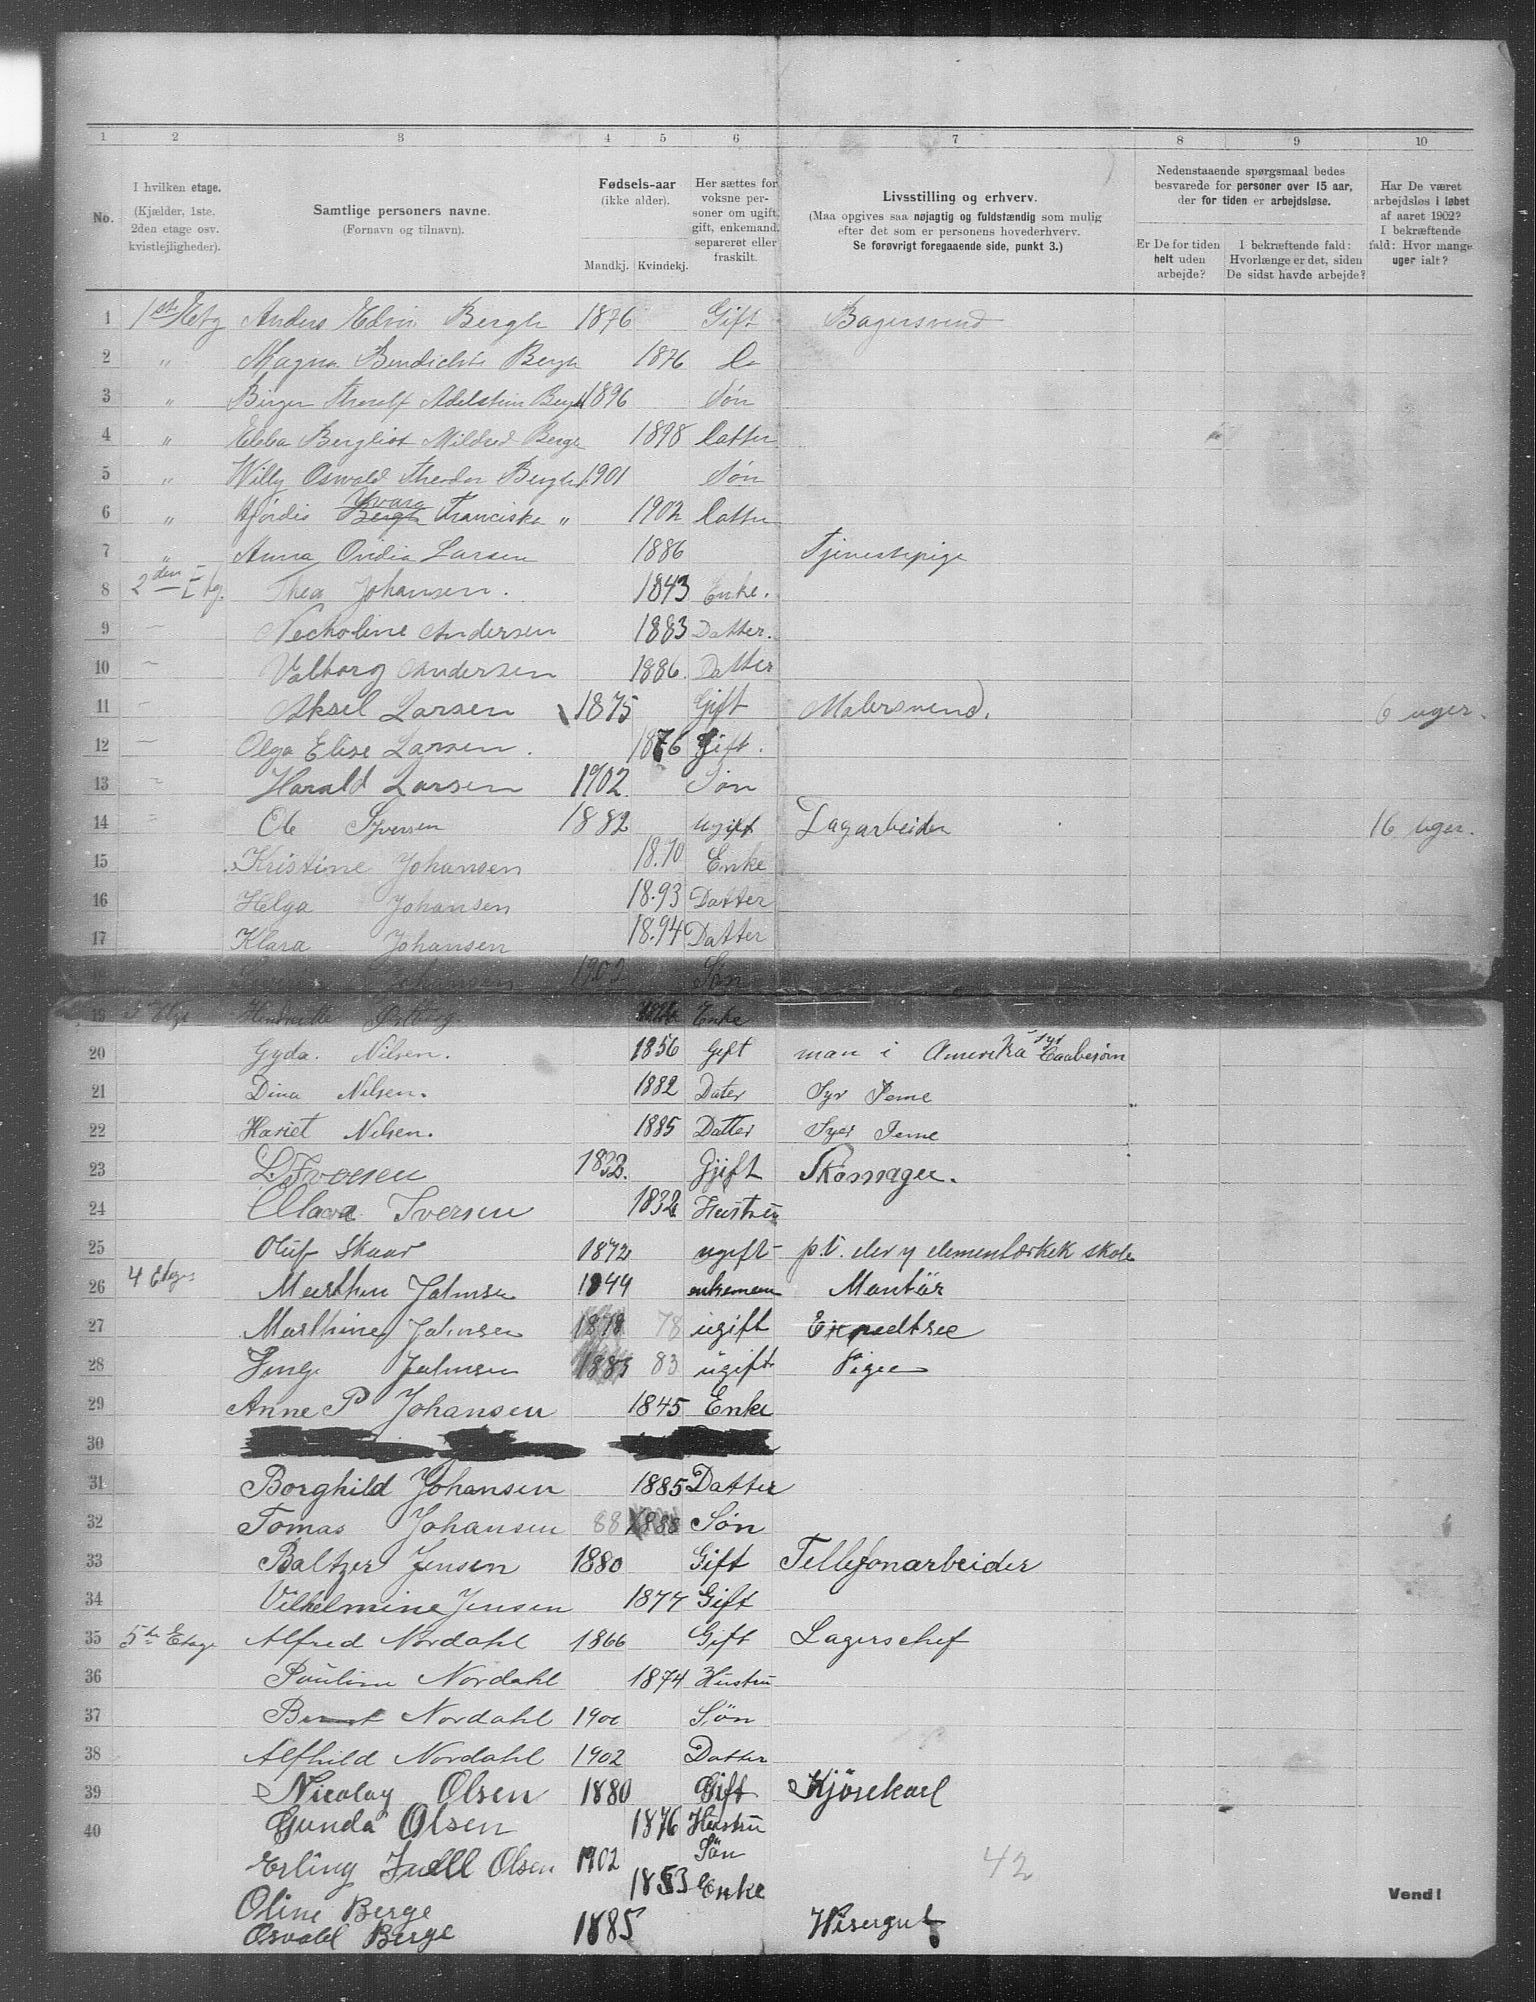 1 2 3 4 5 6 7 8 9 10
No.
I hvilken etage.
(Kjælder, 1ste.
2den etage osv.
kvistlejligheder).
Samtlige personers navne.
(Fornavn og tilnavn).
Fødsels-aar
(ikke alder).
Mandkj. Kvindekj.
Her sættes for
voksne per-
soner om ugift,
gift, enkemand,
separeret eller
fraskilt.
Livsstilling og erhverv.
(Maa opgives saa nøjagtig og fuldstændig som mulig
efter det som er personens hovederhverv.
Se forøvrigt foregaaende side, punkt 3.)
Nedenstaaende spørgsmaal bedes
besvarede for personer over 15 aar,
der for tiden er arbejdsløse.
Er De for tiden
helt uden
arbejde?
I bekræftende fald:
Hvorlænge er det, siden
De sidst havde arbejde?
Har De været
arbejdsløs i løbet
af aaret 1902?
I bekræftende
fald: Hvor mange
uger ialt?
1 1ste Etg Anders Edvin Bergh 1876 Gift Bagersvend
2 " Magna Bendichte Bergh 1876 Do
3 " Birger Thoralf Adelstein Bergh 1896 Søn
4 " Ebba Bergliot Mildred Bergh 1898 Datter
5 " Willy Oswald Theodor Bergh 1901 Søn
6 " Hjørdis Yvara Franciska " 1902 Datter
7 " Anna Ovidia Larsen 1886 Tjenestepige
8 2den Etg. Thea Johansen. 1843 Enke.
9 Necholine Andersen 1883 Datter.
10 Valborg Andersen 1886. Datter
11 Aksel Larsen 1875 Gift Malersvend. 6 uger.
12 Olga Elise Larsen. 1876 Gift.
13 Harald Larsen 1902. Søn
14 Ole Syversen 1882 ugift Lagarbeider 16 uger.
15 Kristine Johansen 18.70 Enke
16 Helga Johansen 18.93 Datter
17 Klara Johansen 18.94 Datter
18 Johansen 1902 Søn
19 3 Etge Henriette Østberg Enke
20 Gyda. Nilsen. 1856 Gift man i Amerika
21 Dina Nilsen. 1882 Dater Syr Jeme
22 Hariet Nilsen. 1885 Datter Syer Jeme
23 L. Iversen 1832. Gjift Skomager.
24 Olava Iversen 1832 Hustru
25 Oluf Skaar 1872 ugift p.t. elev
26 4 Etage Marthin Johnsen 1844 enkemann Montør
27 Marthine Johnsen 1878 78 ugift Expedtree
28 Johnsen 1883 83 ugift Pige
29 Anne P Johansen 1845 Enke
30
31 Borghild Johansen 1885 Datter
32 Tomas Johansen 88 1888 Søn
33 Baltzer Jensen 1880 Gift Tellefonarbeider
34 Vilhelmine Jensen 1877 Gift
35 5te Etage Alfred Nordahl 1866 Gift Lagerschef
36 Pauline Nordahl 1874 Hustru
37 Bernt Nordahl 1900 Søn
38 Alfhild Nordahl 1902 Datter
39 Nicolay Olsen 1880 Gift Kjørekarl
40 Gunda Olsen 1876 Hustru
Erling Juell Olsen 1902 Søn
42
Oline Berge 1853 Enke
Vend!
Osvald Berge 1885 Visergut